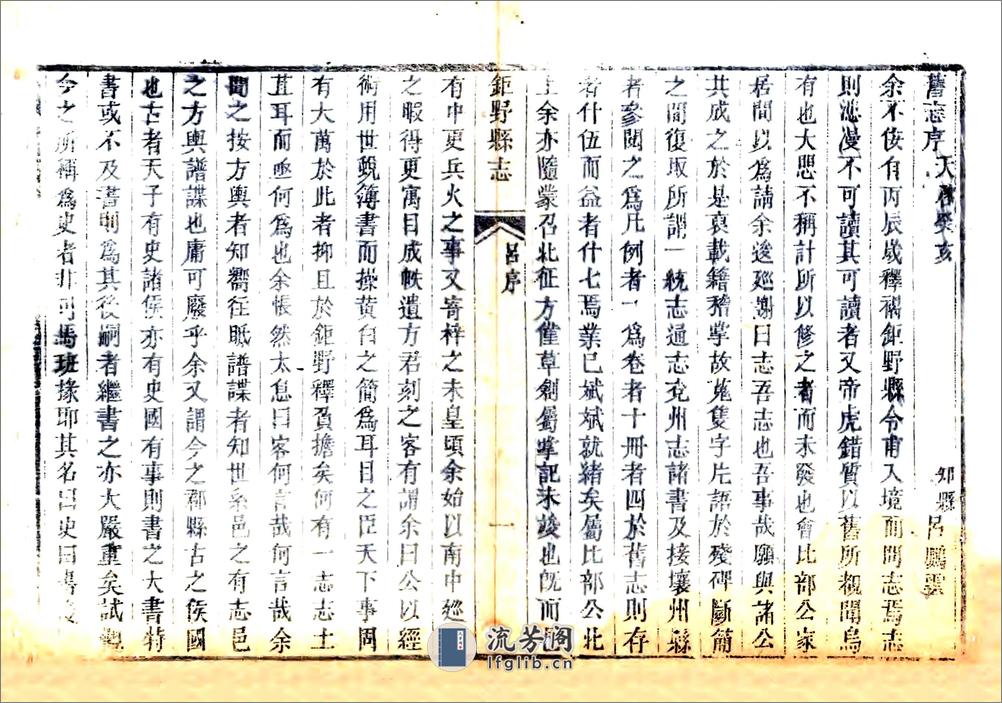 舊志序 天啟癸亥 知縣呂鵬雲
余不佞有丙辰歲釋褐鉅野縣令甫入境而問志焉志
則漶漫不可讀其可讀者又帝虎錯質以舊所覩聞烏
有也大懼不稱計所以修之者而未發也會比部公家
居間以為請余逡廵謝曰志吾志也吾事哉願與諸公
共成之於是裒載籍稽掌故蒐隻字片語於殘碑斷簡
之間復取所謂一統志通志兗州志諸書及接壤州縣
者參閱之為凡例者一為卷者十冊者四於舊志則存
者什伍而益者什七焉業已斌斌就緒矣屬比部公北
上余亦隨蒙召北征方僅草創屬掌記未竣也旣而
鉅野縣志 呂序 一
有中更兵火之事又寄梓之未皇頃余始以南中廵
之暇得更寓目成帙遺方君刻之客有謂余曰公以經
術用世覬簿書而操黃白之簡為耳目之臣天下事固
有大萬於此者抑且於鉅野釋負擔矣何有一志志土
苴耳而亟何為也余悵然太息曰客何言哉何言哉余
聞之按方輿者知嚮往眡譜諜者知世系邑之有志邑
之方輿譜諜也庸可廢乎余又謂今之郡縣古之侯國
也古者天子有史諸侯亦有史國有事則書之大書特
書或不及書則為其後嗣者繼書之亦大嚴重矣試觀
今之所稱為史者非司馬班掾耶其名曰史曰書
流芳阁
lfglib.cn